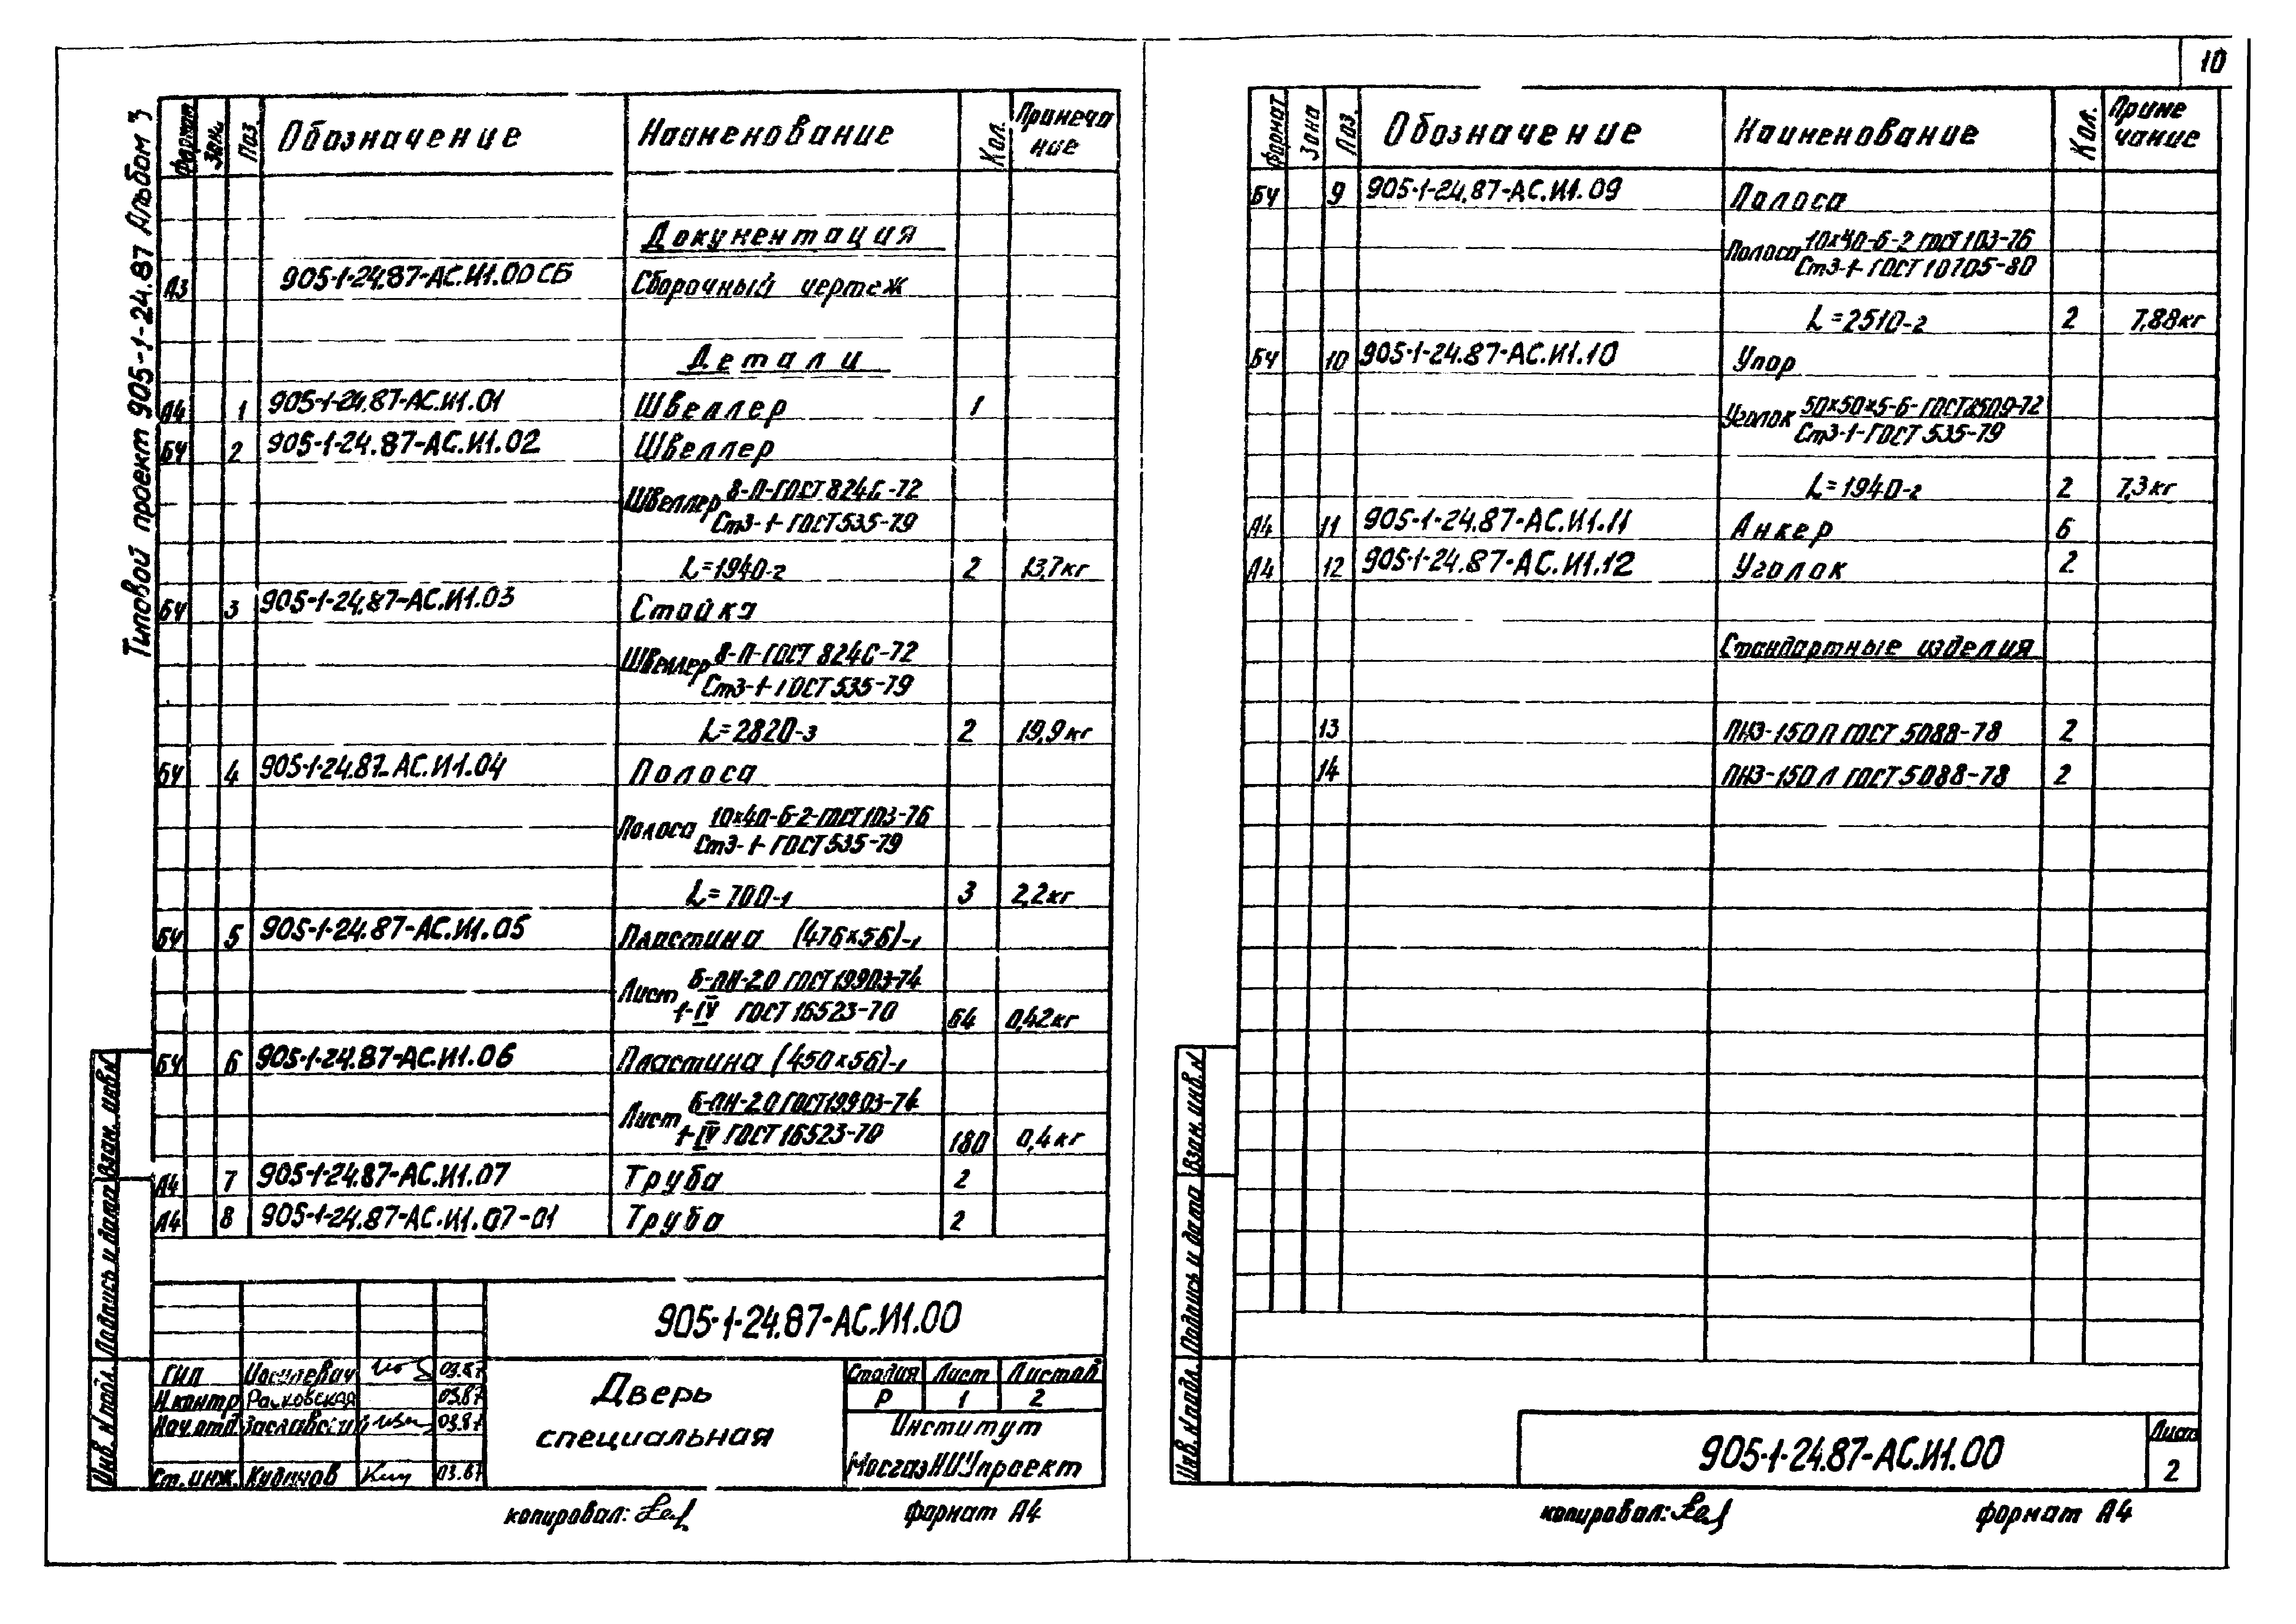 10
Типовой проект 905-1-24.87 Альбом 3
Формат Зона Поз. Обозначение Наименование Кол. Примечание
Документация
А3 905-1-24.87-АС.И1.00 СБ Сборочный чертеж
Детали
А4 1 905-1-24.87-АС.И1.01 Швеллер 1
БЧ 2 905-1-24.87-АС.И1.02 Швеллер
Швеллер 8-П-ГОСТ 8240-72
Ст3-1-ГОСТ 535-79
L=1940-2 2 13,7кг
БЧ 3 905-1-24.87-АС.И1.03 Стойка
Швеллер 8-П-ГОСТ 8240-72
Ст3-1-ГОСТ 535-79
L=2820-3 2 19,9кг
БЧ 4 905-1-24.87-АС.И1.04 Полоса
Полоса 10×40-Б-2-ГОСТ 103-76
Ст3-1-ГОСТ 535-79
L=700-1 3 2,2кг
БЧ 5 905-1-24.87-АС.И1.05 Пластина (476×56)-1
Лист Б-ПН-2.0 ГОСТ 19903-74
1-IV ГОСТ 16523-70 64 0,42кг
БЧ 6 905-1-24.87-АС.И1.06 Пластина (450×56)-1
Лист Б-ПН-2.0 ГОСТ 19903-74
1-IV ГОСТ 16523-70 180 0,4кг
А4 7 905-1-24.87-АС.И1.07 Труба 2
А4 8 905-1-24.87-АС.И1.07-01 Труба 2
905-1-24.87-АС.И1.00
ГИП 03.87
Н.контр Раковская 03.87
Нач.отд. Заславский 03.87
Ст.инж. 03.87
Дверь
специальная
Стадия Лист Листов
Р 1 2
Институт
МосгазНИИпроект
Инв. N подл. Подпись и дата Взам. инв. N
копировал:
формат А4
Формат Зона Поз. Обозначение Наименование Кол. Примечание
БЧ 9 905-1-24.87-АС.И1.09 Полоса
Полоса 10×40-Б-2 ГОСТ 103-76
Ст3-1-ГОСТ 10705-80
L=2510-2 2 7,88кг
БЧ 10 905-1-24.87-АС.И1.10 Упор
Уголок 50×50×5-Б-ГОСТ 8509-72
Ст3-1-ГОСТ 535-79
L=1940-2 2 7,3кг
А4 11 905-1-24.87-АС.И1.11 Анкер 6
А4 12 905-1-24.87-АС.И1.12 Уголок 2
Стандартные изделия
13 ПН3-150 П ГОСТ 5088-78 2
14 ПН3-150 Л ГОСТ 5088-78 2
Инв. N подл. Подпись и дата Взам. инв. N
905-1-24.87-АС.И1.00
Лист
2
копировал:
формат А4